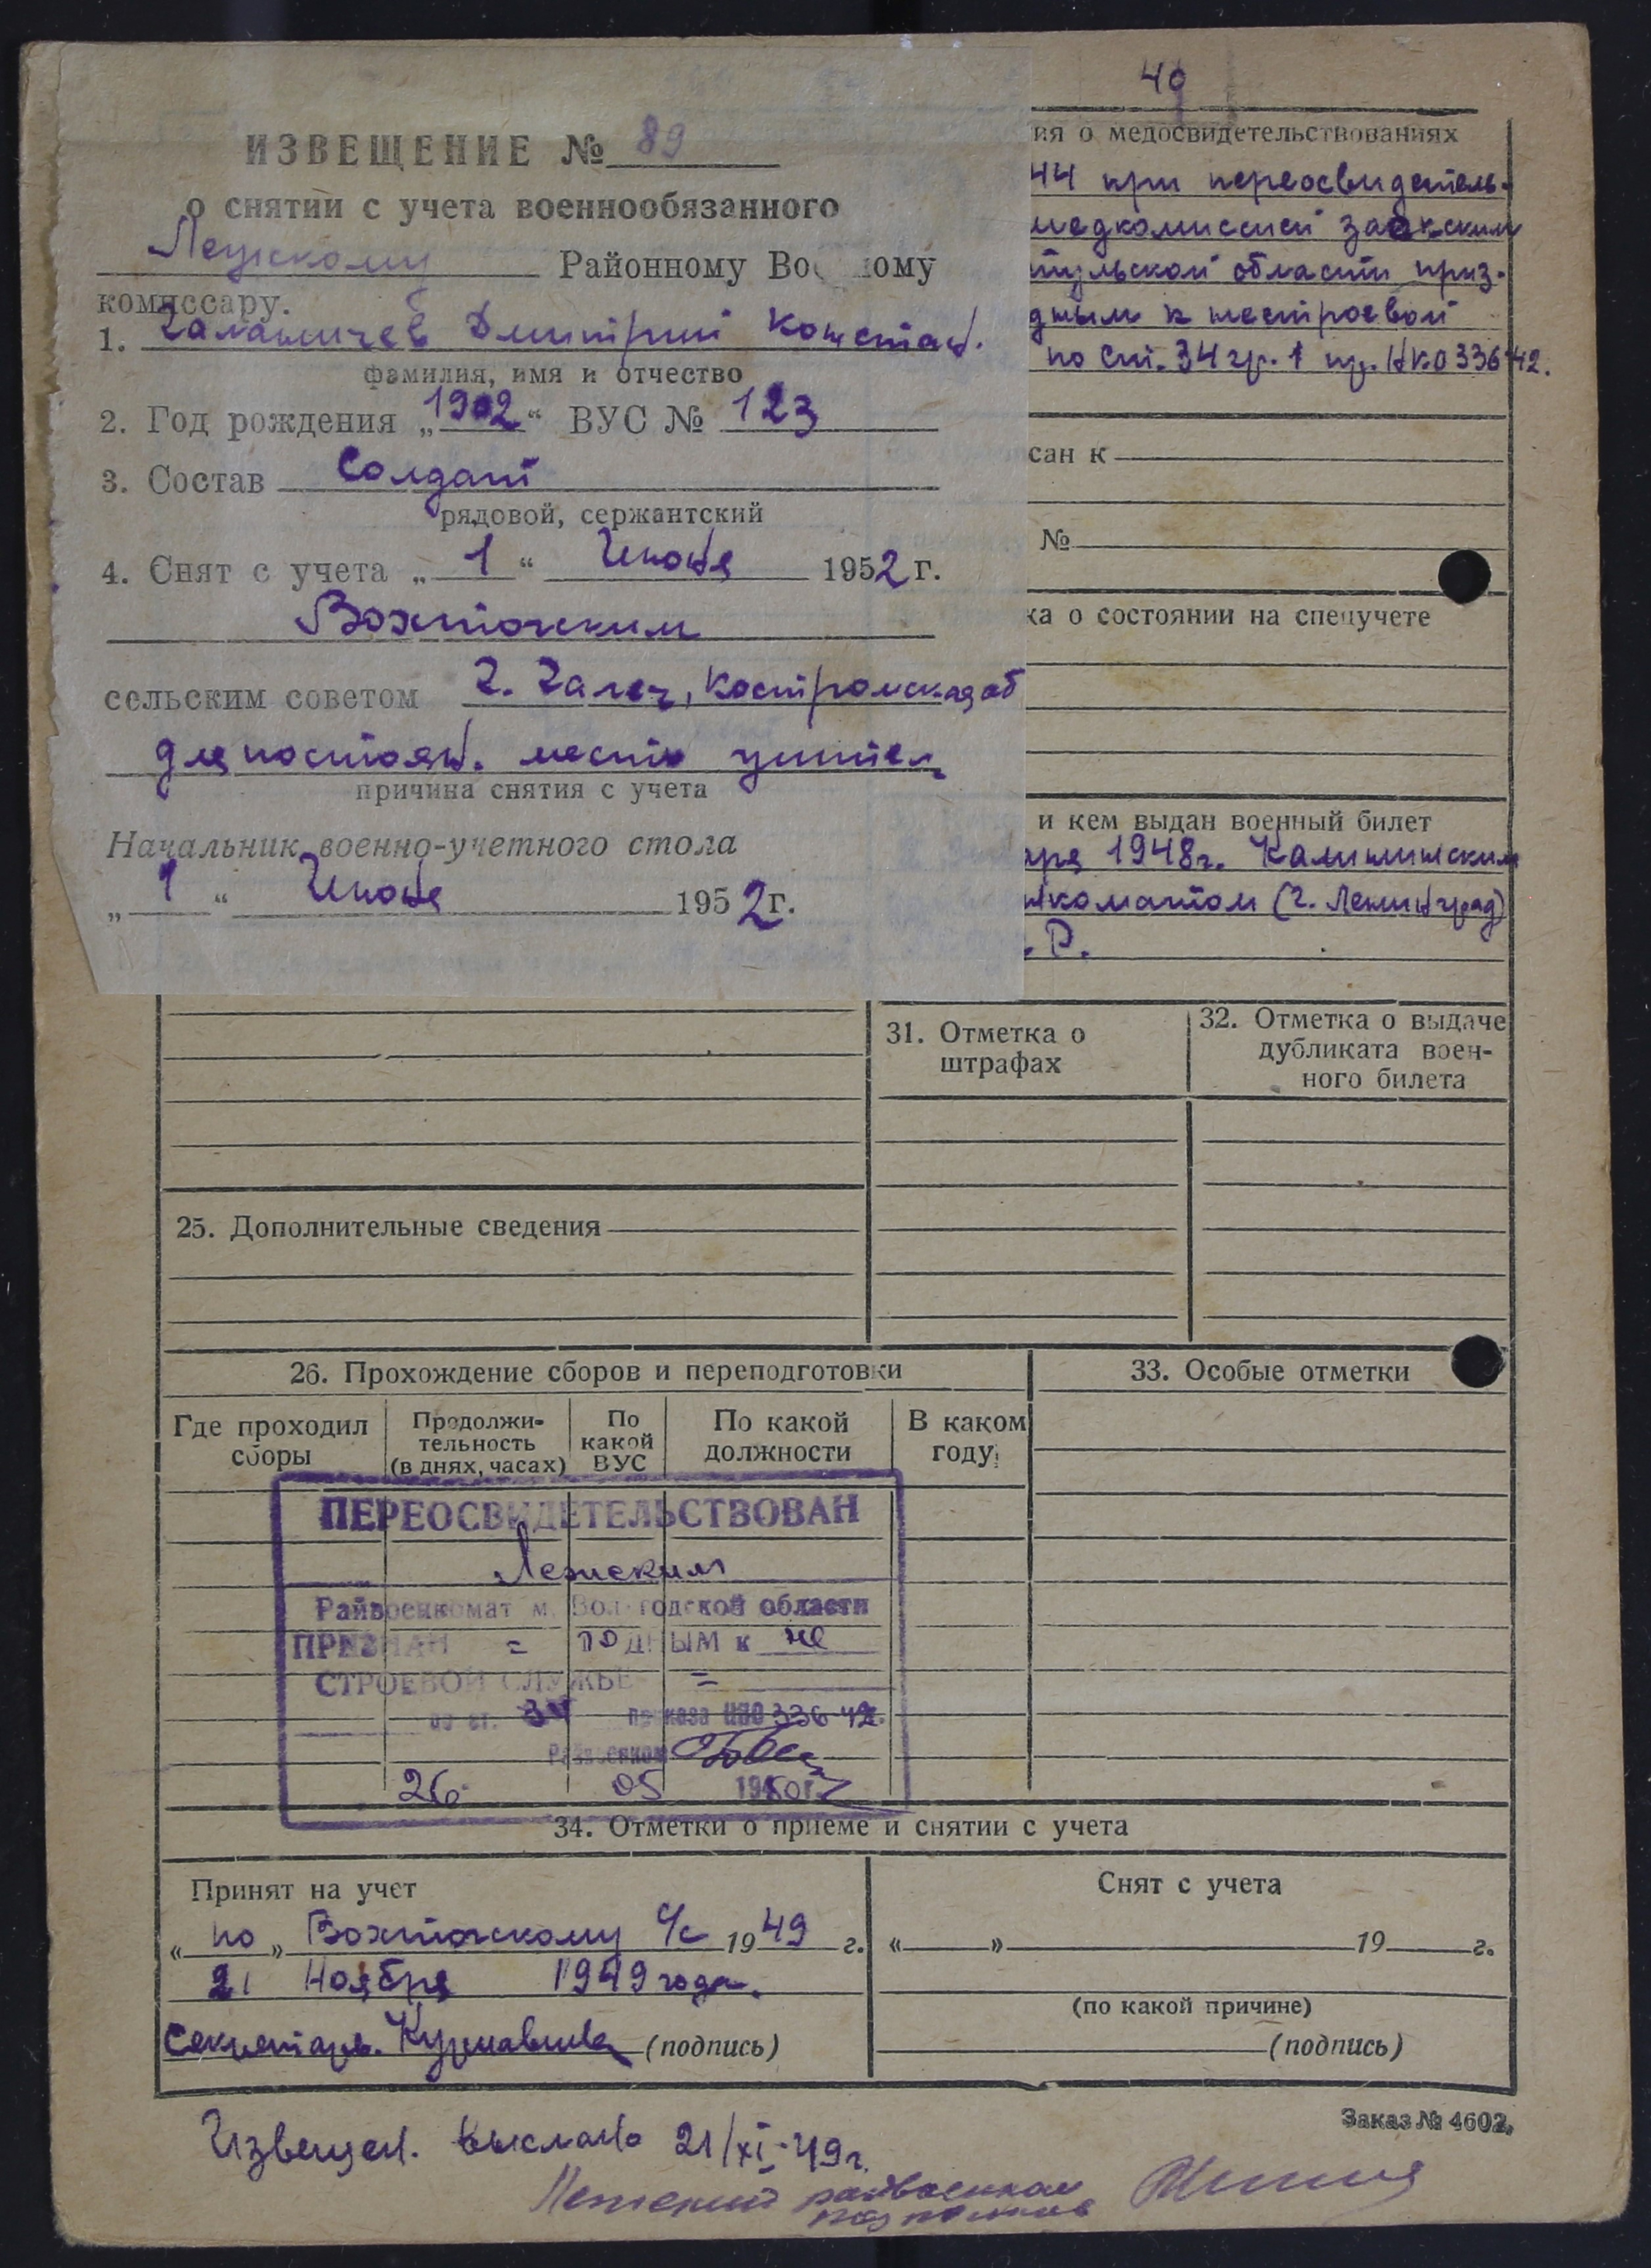 49
ИЗВЕЩЕНИЕ № 89
о снятии с учета военнообязанного
Лежскому Районному Во ому
комиссару.
1. Галаничев Дмитрий Констан.
фамилия, имя и отчество
2. Год рождения „1902“ ВУС № 123
3. Состав Солдат
рядовой, сержантский
4. Снят с учета „1“ Июня 1952 г.
Вохточским
сельским советом г. Галеч, Костромская об
для постоян. место жител,
причина снятия с учета
Начальник военно-учетного стола
„1“ Июня 1952 г.
ия о медосвидетельствованиях
44 при переосвидетель-
медкомиссией Заокским
тульской области приз-
дным к нестроевой
по ст. 34 гр. 1 пр. НКО 336-42.
сан к
№
ка о состоянии на спецучете
и кем выдан военный билет
аря 1948 г. Калининским
нкоматом (г. Ленинград)
.Р.
31. Отметка о
штрафах
32. Отметка о выдаче
дубликата воен-
ного билета
25. Дополнительные сведения
26. Прохождение сборов и переподготовки
33. Особые отметки
Где проходил
сборы
Продолжи-
тельность
(в днях, часах)
По
какой
ВУС
По какой
должности
В каком
году
ПЕРЕОСВИДЕТЕЛЬСТВОВАН
Лежским
Райвоенкомат м. Вологодской области
ПРИЗНАН = ГОДНЫМ к не
СТРОЕВОЙ СЛУЖБЕ =
по ст. 34 приказа НКО 336-42.
Райвоенком
26 05 1950 г.
34. Отметки о приеме и снятии с учета
Принят на учет
« по » Вохточскому с/с 1949 г.
21 Ноября 1949 года.
Секретарь. (подпись)
Снят с учета
« » 19 г.
(по какой причине)
(подпись)
Заказ № 4602.
Извещен. выслано 21/XI-49 г.
Лежский райвоенком